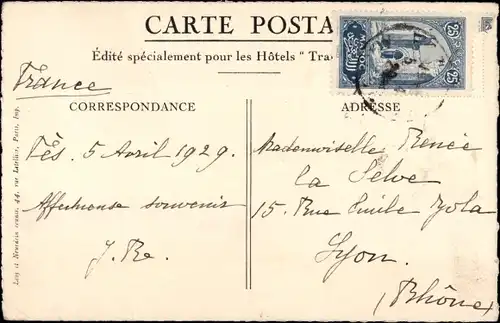 CARTE POSTA
Édité spécialement pour les Hôtels " Tra
France
CORRESPONDANCE
ADRESSE
25 25
MAROC
Fès. 5 Avril 1929.
Affectueux souvenir
J. Re.
Mademoiselle Renée
La Selve
15. Rue Emile Zola
Lyon.
(Rhône)
Lévy et Neurdein réunis, 44, rue Letellier, Paris, Imp.